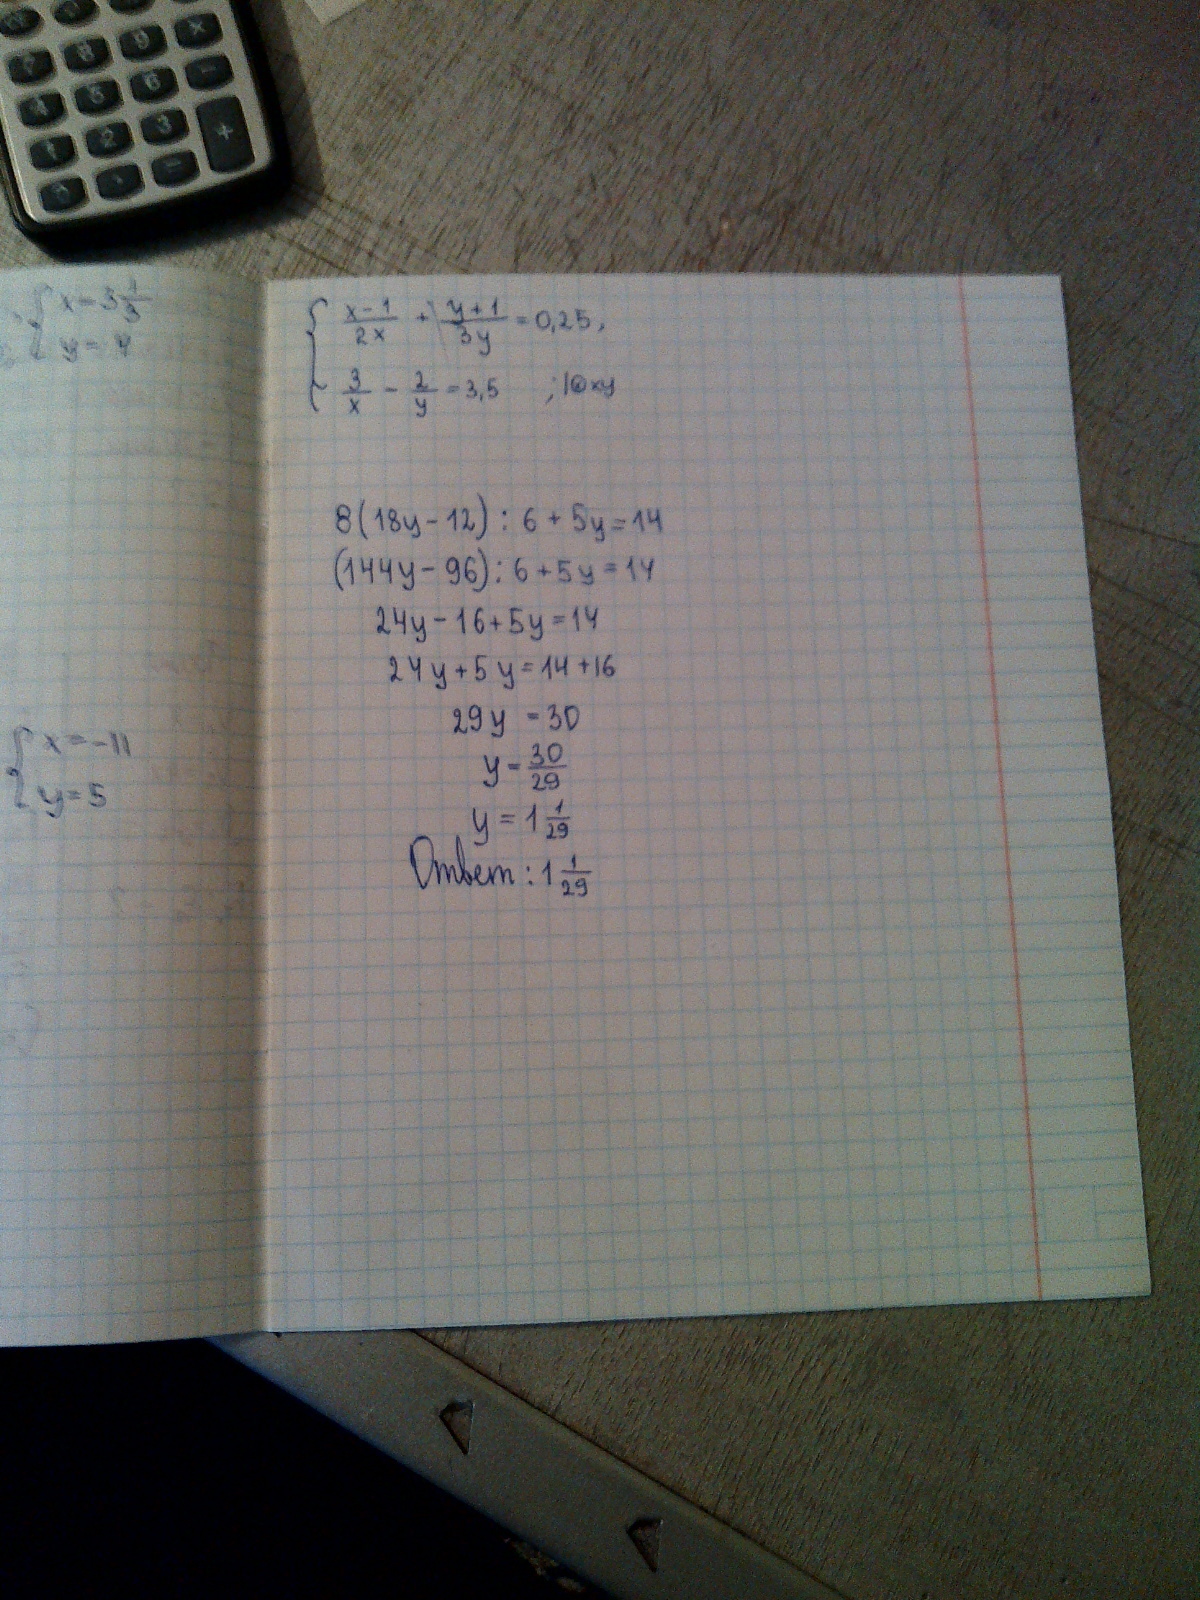 x = 3 1/3
y = 4
x = -11
y = 5
(x-1)/(2x) + (y+1)/(3y) = 0,25,
3/x - 2/y = 3,5 ; 10xy
8(18y - 12) : 6 + 5y = 14
(144y - 96) : 6 + 5y = 14
24y - 16 + 5y = 14
24y + 5y = 14 + 16
29y = 30
y = 30/29
y = 1 1/29
Ответ : 1 1/29